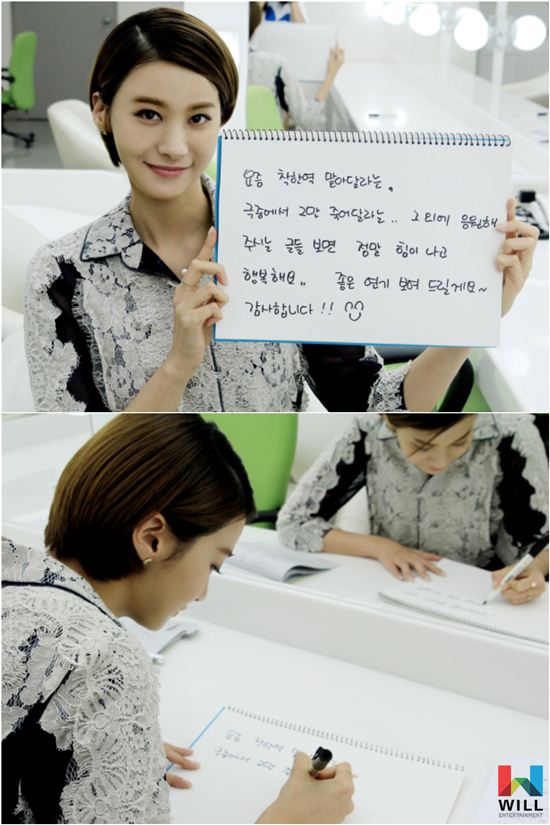 요즘 착한역 맡아달라는,
극중에서 그만 죽어달라는.. 그 외에 응원해
주시는 글들 보면 정말 힘이 나고
행복해요.. 좋은 연기 보여 드릴게요~
감사합니다!!
요즘 착한역
극중에서 그만
WILL
ENTERTAINMENT